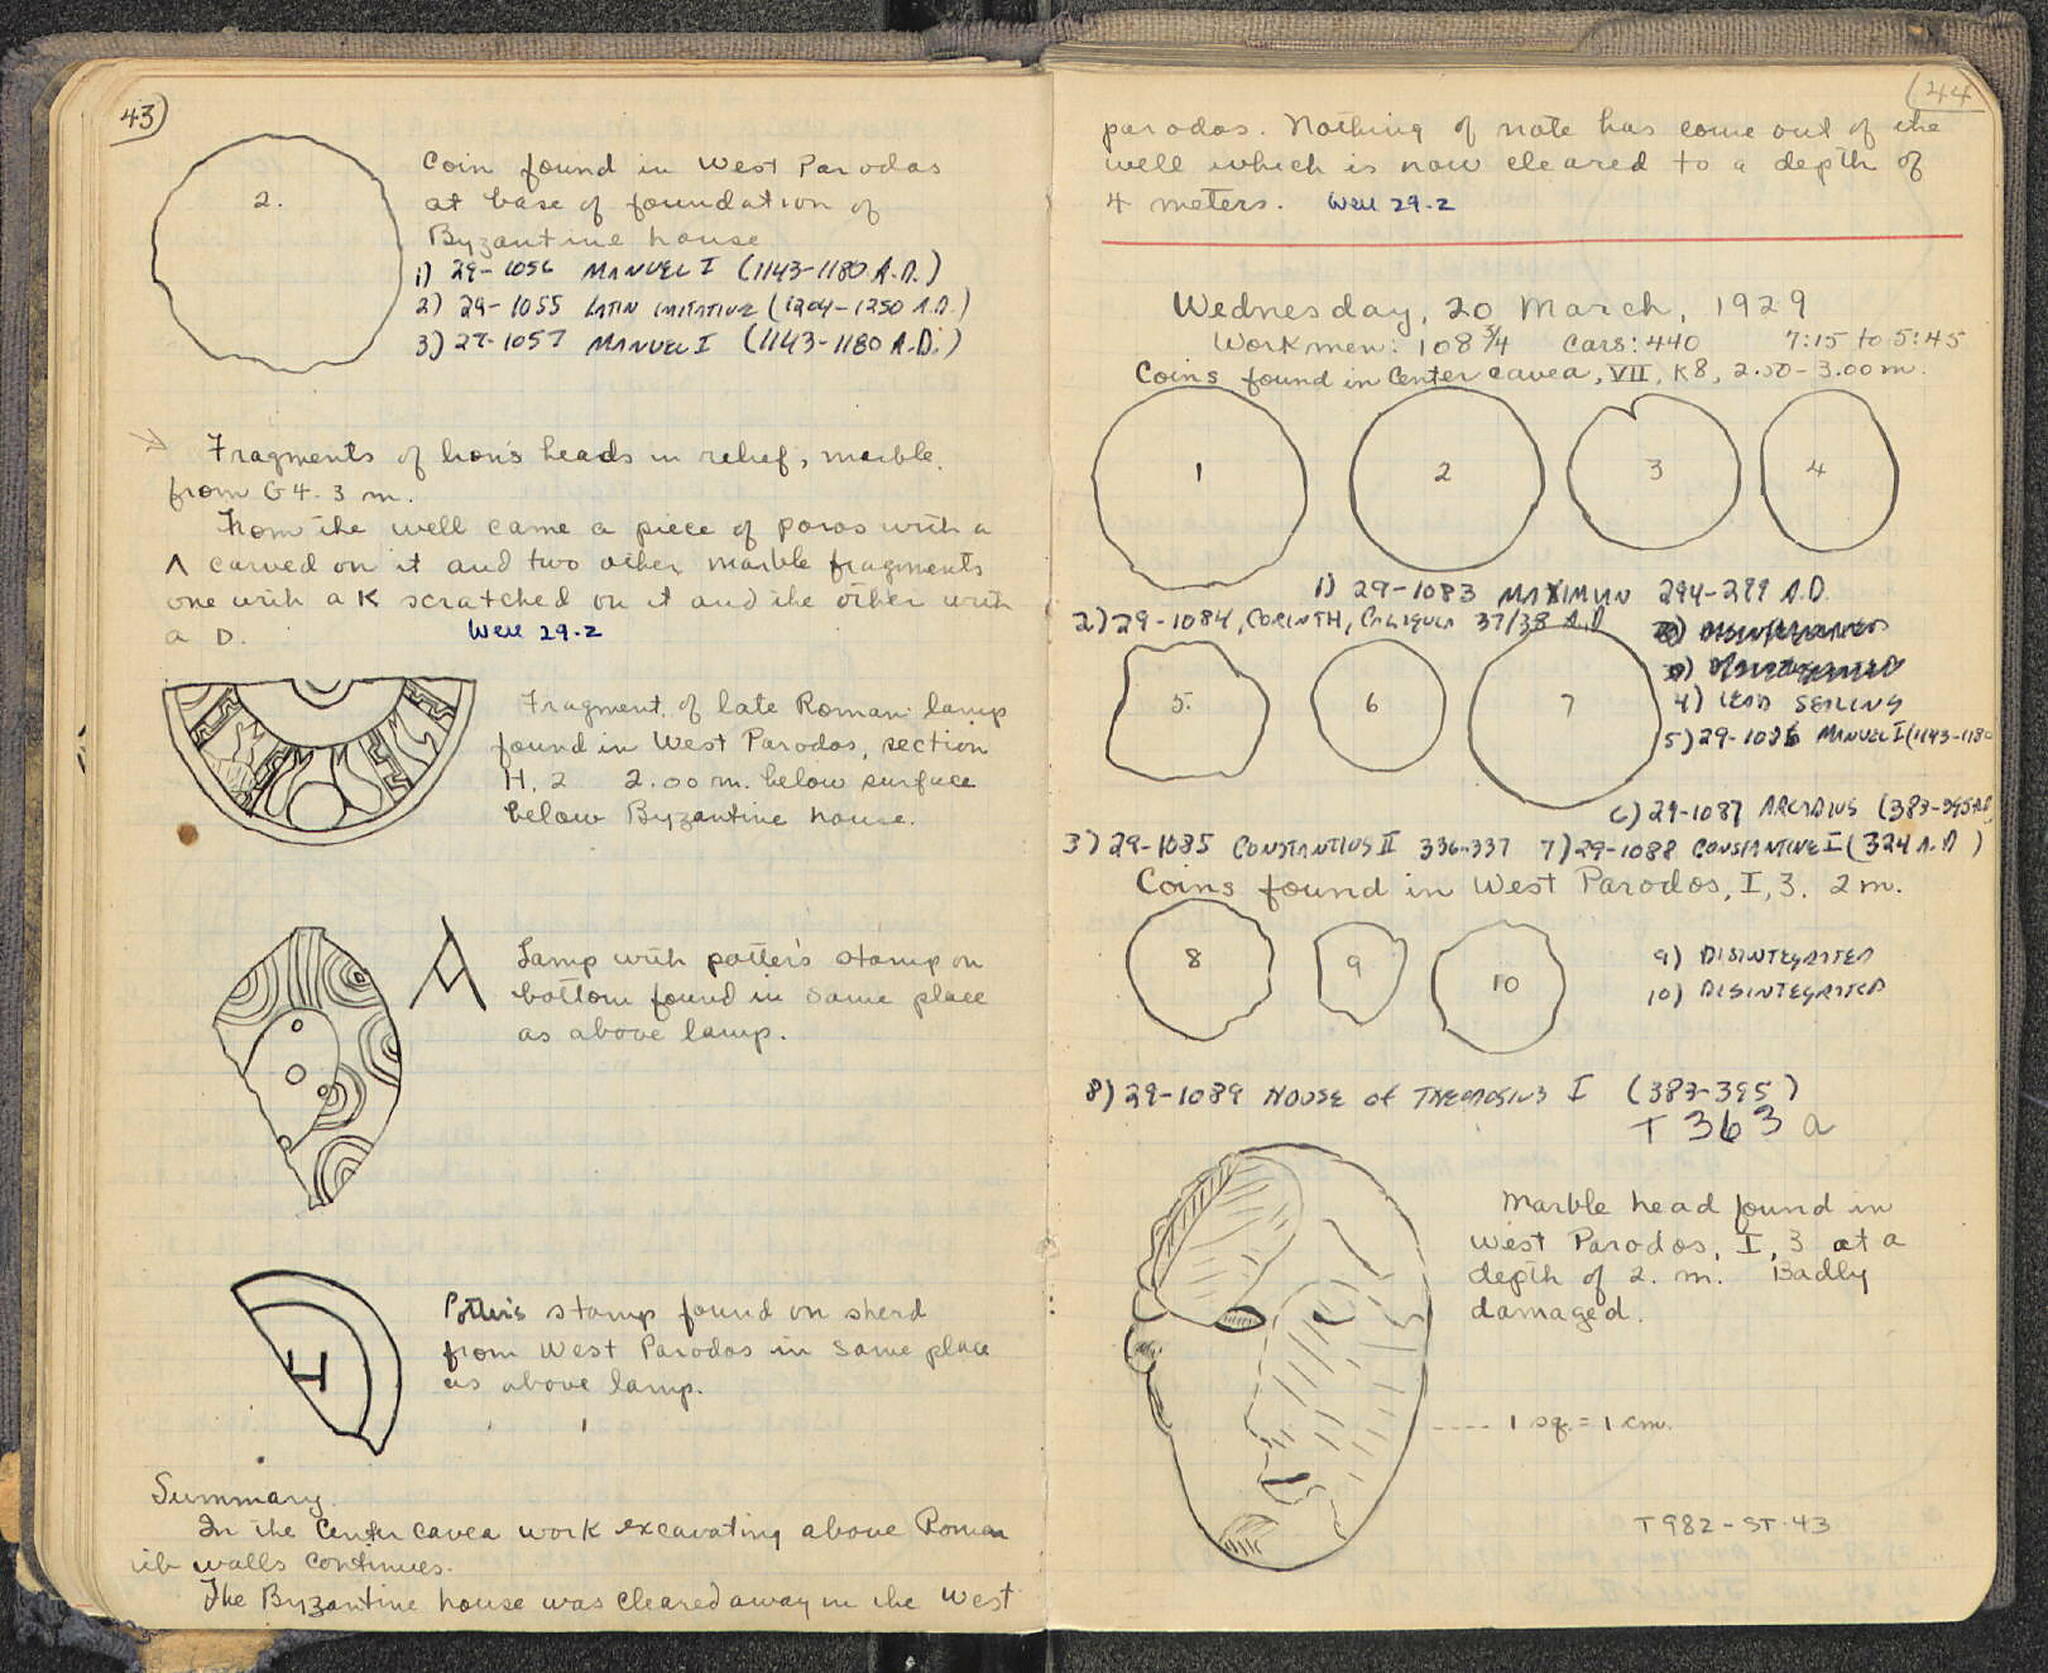 43)
2.
Coin found in West Parodos
at base of foundation of
Byzantine house
1) 29-1056 MANUEL I (1143-1180 A.D.)
2) 29-1055 LATIN IMITATIVE (1204-1250 A.D.)
3) 29-1057 MANUEL I (1143-1180 A.D.)
Fragments of lion's heads in relief, marble.
from G 4. 3 m.
From the well came a piece of poros with a
Λ carved on it and two other marble fragments
one with a K scratched on it and the other with
a D. Well 29-2
Fragment of late Roman lamp
found in West Parodos, section
H, 2 2.00 m. below surface
below Byzantine house.
Lamp with potter's stamp on
bottom found in same place
as above lamp.
Potter's stamp found on sherd
from West Parodos in same place
as above lamp.
Summary.
In the Center cavea work excavating above Roman
rib walls continues.
The Byzantine house was cleared away in the West
(44
parodos. Nothing of note has come out of the
well which is now cleared to a depth of
4 meters. Well 29-2
Wednesday, 20 March, 1929
Workmen: 108 3/4 Cars: 440 7:15 to 5:45
Coins found in Center cavea, VII, K8, 2.50-3.00 m.
1 2 3 4
1) 29-1083 MAXIMIAN 294-299 A.D.
2) 29-1084, CORINTH, CALIGULA 37/38 A.D
5. 6 7
4) LEAD SEALING
5) 29-1086 MANUEL I (1143-1180
6) 29-1087 ARCADIUS (383-395 A.D.
3) 29-1085 CONSTANTIUS II 336-337 7) 29-1088 CONSTANTINE I (324 A.D)
Coins found in West Parodos, I, 3. 2 m.
8 9 10
9) DISINTEGRATED
10) DISINTEGRATED
8) 29-1089 HOUSE of THEODOSIUS I (383-395)
T 363 a
Marble head found in
West Parodos, I, 3 at a
depth of 2. m. Badly
damaged.
---- 1 sq. = 1 cm.
T982-ST-43